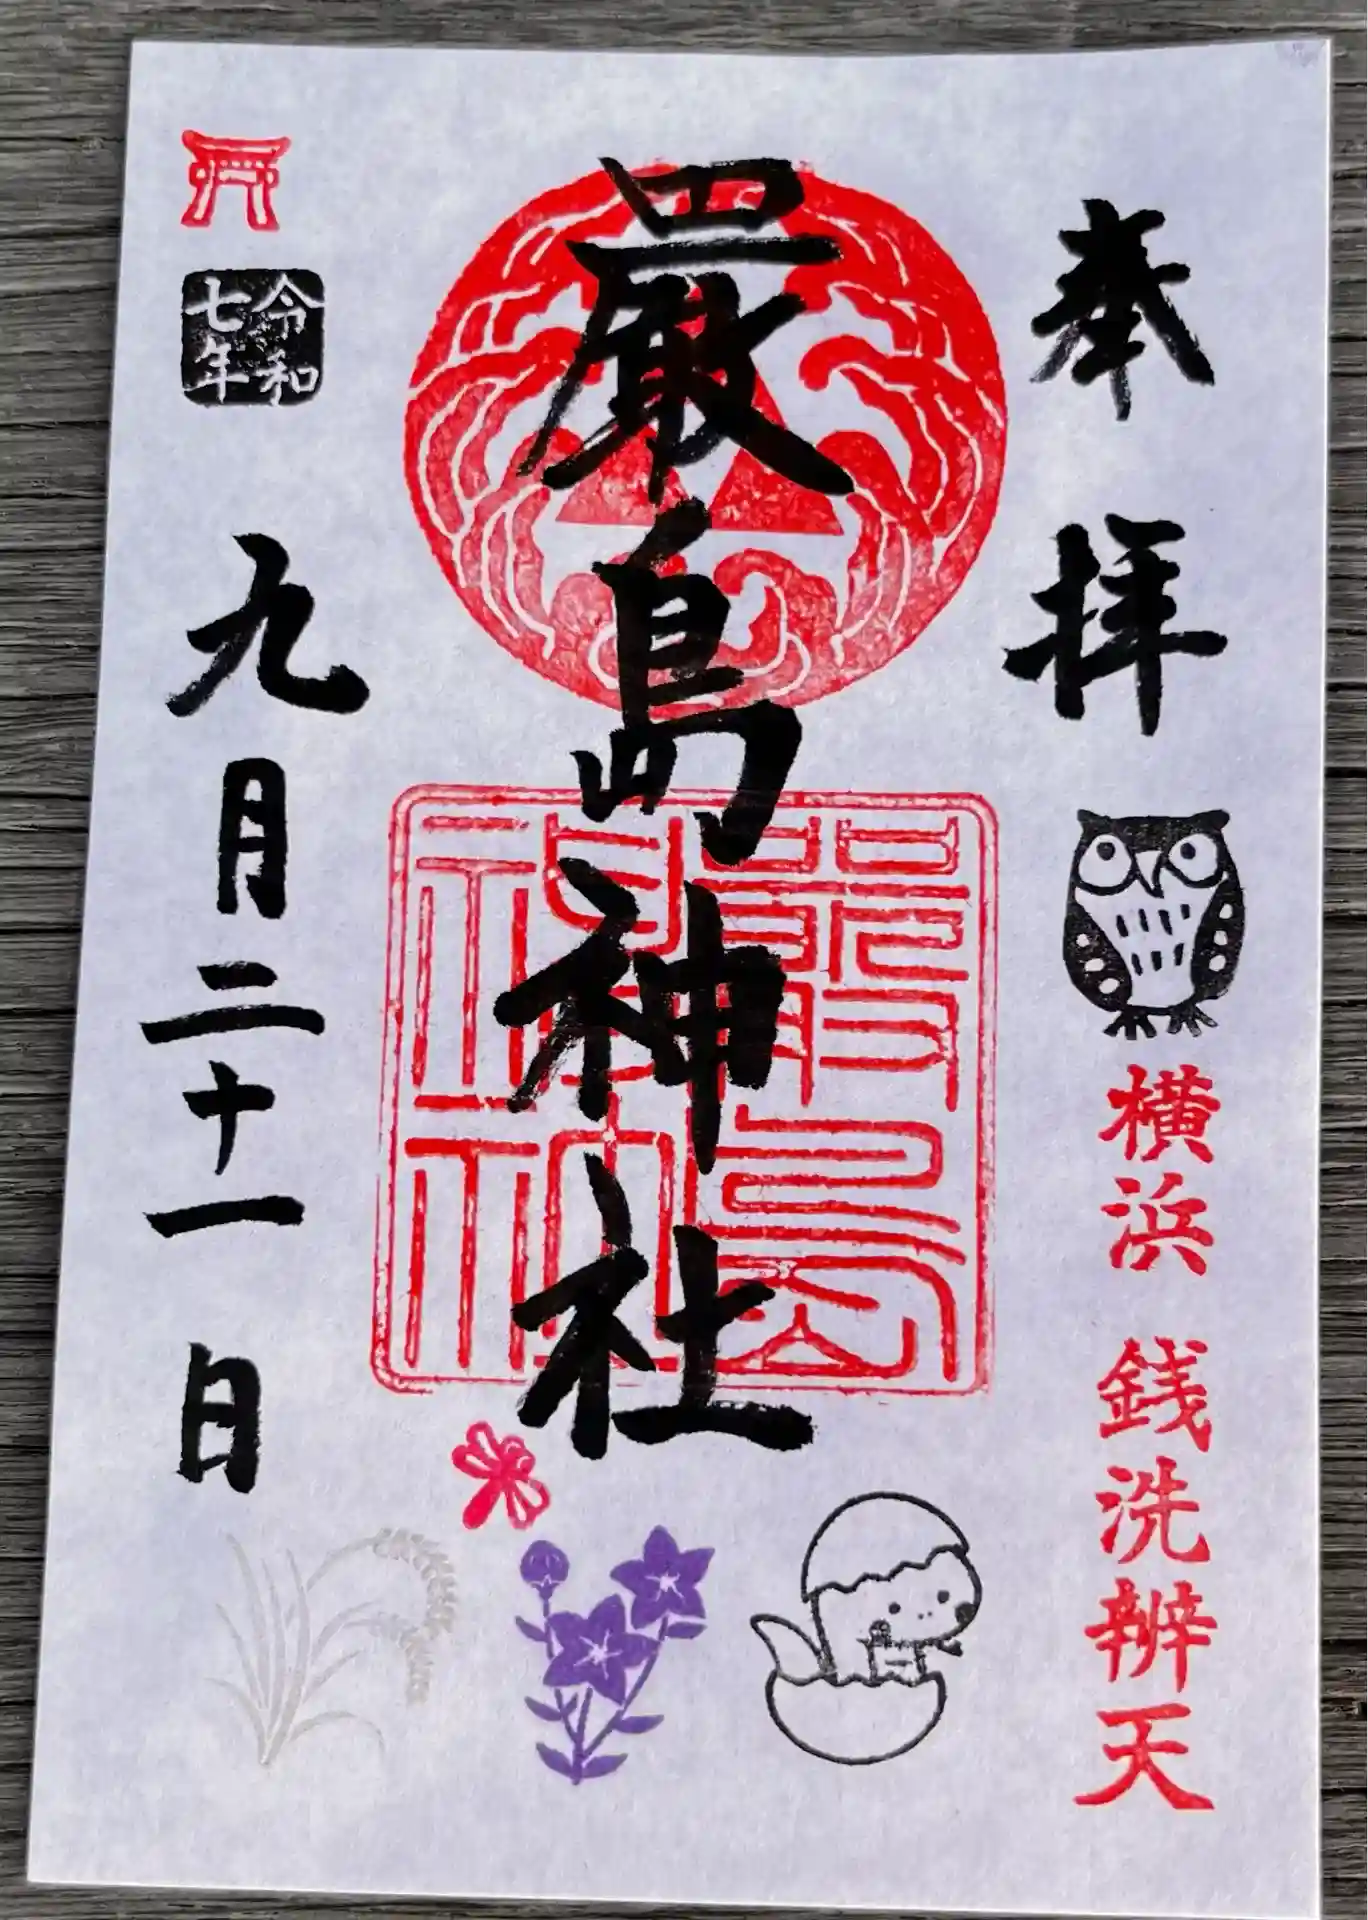 奉拝
横浜 銭洗辨天
厳島神社
嚴島
神社
令和
七年
九月二十一日